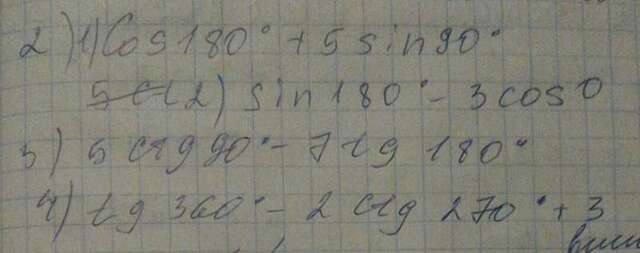 2) 1) Cos 180° + 5 sin 90°
2) sin 180° - 3 cos 0
3) 5 ctg 90° - 7 tg 180°
4) tg 360° - 2 ctg 270° + 3